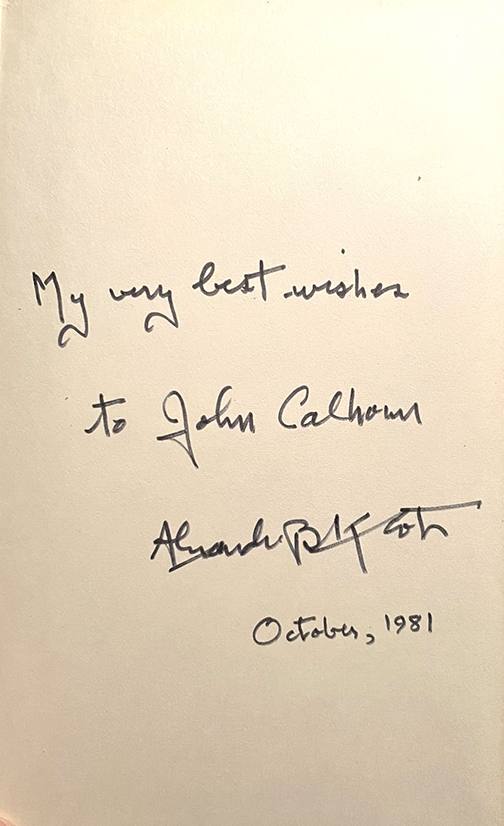 My very best wishes
to John Calhoun
Alexander B. Klots
October, 1981